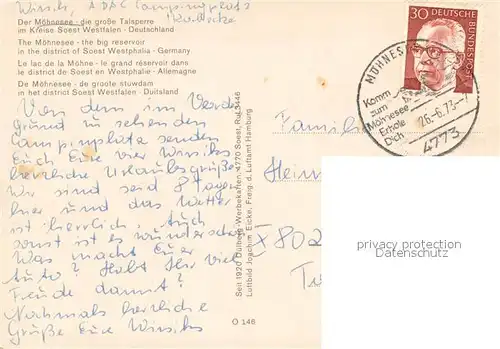 Winsiks, ADAC Campingplatz
Der Möhnesee - die große Talsperre
im Kreise Soest Westfalen - Deutschland
The Möhnesee - the big reservoir
in the district of Soest Westphalia - Germany
Le lac de la Möhne - le grand réservoir dans
le district de Soest en Westphalie - Allemagne
De Möhnesee - de groote stuwdam
in het district Soest Westfalen - Duitsland
Von dem im Vorder-
grund zu sehenden
Campingplatz senden
Euch Eure vier Winsiks
herzliche Urlaubsgrüße.
Wir sind seit 8 Tagen
hier und das Wetter
ist herrlich. Auch
sonst ist es wunderschön
Was macht Euer
Auto? Habt Ihr viel
Freude damit?
Nochmals herzliche
Grüße Eure Winsiks
O 146
Seit 1920 Dülberg-Werbekarten, 4770 Soest, Ruf 3446
Luftbild Joachim Eicke, Freig. d. Luftamt Hamburg
30 DEUTSCHE BUNDESPOST
MÖHNESEE
Komm
zum
Möhnesee
Erhole
Dich
26.-6.73.-7
4773
Familie
Hein
X 802
privacy protection
Datenschutz